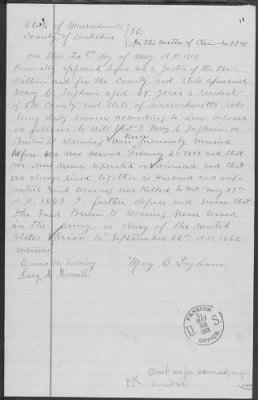 State of Massachusetts
County of Berkshire } SS:
In the matter of Claim No
On this 20th day of May A.D. 1901
Personally appeared before me a Justice of the Peace
within and for the County and State aforesaid
Mary C Ingham aged 61 years a Resident
of the County and State of Massachusetts who
being duly sworn according to Law deposes
as follows to Wit that I Mary C Ingham or
Burton G Wenning were previously married
before We were married February
we were never separated or divorced, and that
we always lived together as Husband and wife
untill said Wenning was Killed to Wit May 27th
A.D. 1863 I further depose and swear that
the said Burton G Wenning never served
in the army or navy of the United
States prior to September 22d A.D. 1862
Witnesses
Emma M
Lucy A Merrill
Mary C Ingham
U.S. PENSION OFFICE
MAY
1901